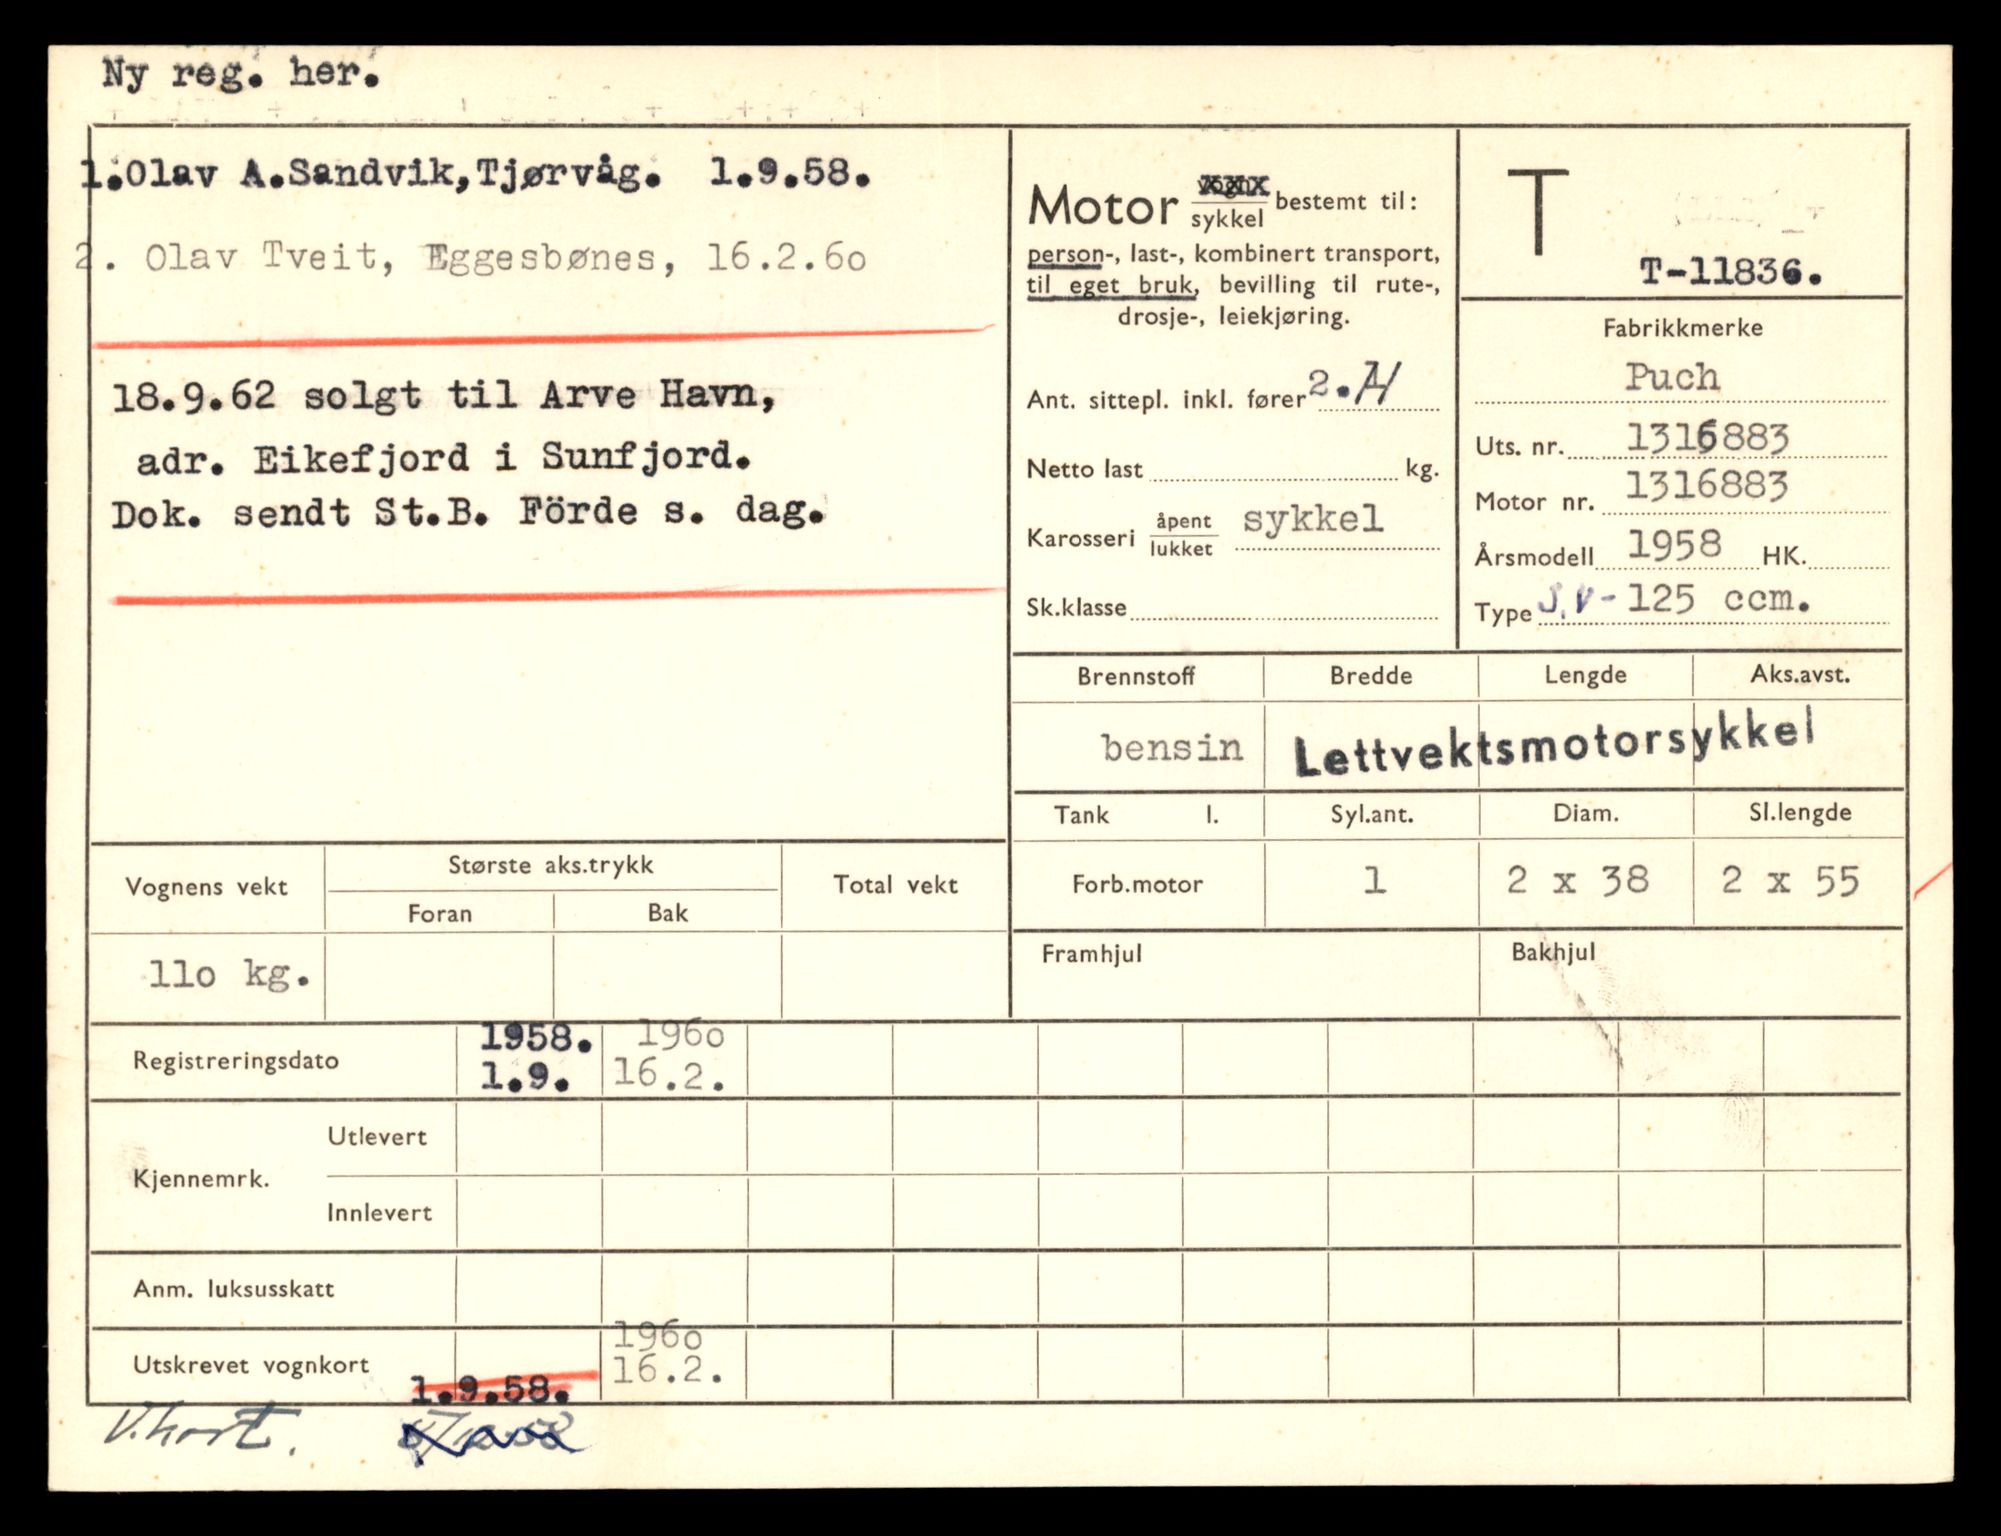 Ny reg. her.
1.Olav A.Sandvik,Tjørvåg. 1.9.58.
2. Olav Tveit, Eggesbønes, 16.2.6o
18.9.62 solgt til Arve Havn,
adr. Eikefjord i Sunfjord.
Dok. sendt St.B. Förde s. dag.
Motor vogn sykkel bestemt til:
person-, last-, kombinert transport,
til eget bruk, bevilling til rute-,
drosje-, leiekjøring.
Ant. sittepl. inkl. fører 2.
Netto last kg.
Karosseri åpent lukket sykkel
Sk.klasse
T
T-11836.
Fabrikkmerke
Puch
Uts. nr. 1316883
Motor nr. 1316883
Årsmodell 1958 HK.
Type S.V- 125 ccm.
Brennstoff Bredde Lengde Aks.avst.
bensin Lettvektsmotorsykkel
Tank l. Syl.ant. Diam. Sl.lengde
Forb.motor 1 2 x 38 2 x 55
Framhjul Bakhjul
Vognens vekt Største aks.trykk Total vekt
Foran Bak
11o kg.
Registreringsdato 1958. 196o
1.9. 16.2.
Kjennemrk. Utlevert
Innlevert
Anm. luksusskatt
Utskrevet vognkort 1.9.58. 196o
16.2.
V.kort.